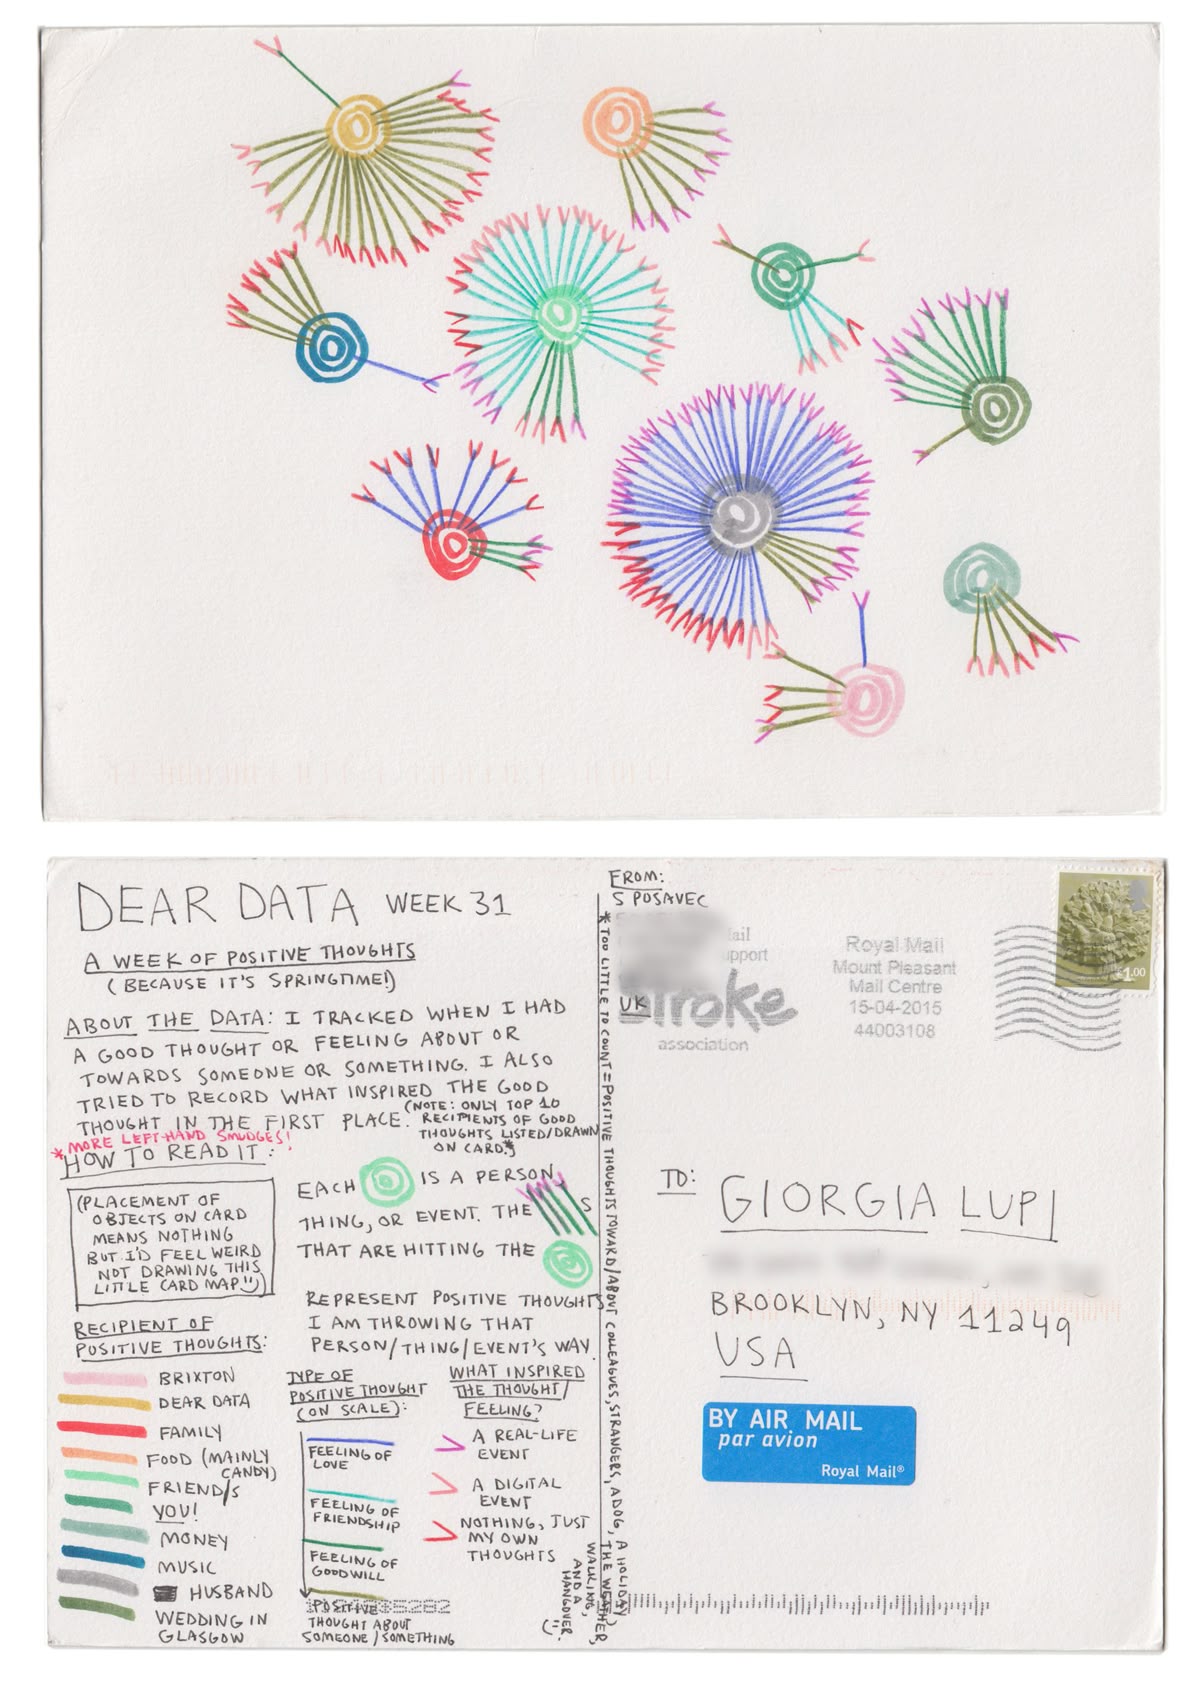 DEAR DATA WEEK 31
A WEEK OF POSITIVE THOUGHTS
(BECAUSE IT'S SPRINGTIME!)
ABOUT THE DATA: I TRACKED WHEN I HAD
A GOOD THOUGHT OR FEELING ABOUT OR
TOWARDS SOMEONE OR SOMETHING. I ALSO
TRIED TO RECORD WHAT INSPIRED THE GOOD
THOUGHT IN THE FIRST PLACE.
(NOTE: ONLY TOP 10
RECIPIENTS OF GOOD
THOUGHTS LISTED/DRAWN
ON CARD.*)
*MORE LEFT-HAND SMUDGES!
HOW TO READ IT:
(PLACEMENT OF
OBJECTS ON CARD
MEANS NOTHING
BUT I'D FEEL WEIRD
NOT DRAWING THIS
LITTLE CARD MAP)
EACH IS A PERSON,
THING, OR EVENT. THE S
THAT ARE HITTING THE
REPRESENT POSITIVE THOUGHTS
I AM THROWING THAT
PERSON/THING/EVENT'S WAY.
RECIPIENT OF
POSITIVE THOUGHTS:
BRIXTON
DEAR DATA
FAMILY
FOOD (MAINLY
CANDY)
FRIEND/S
YOU!
MONEY
MUSIC
HUSBAND
WEDDING IN
GLASGOW
TYPE OF
POSITIVE THOUGHT
(ON SCALE):
FEELING OF
LOVE
FEELING OF
FRIENDSHIP
FEELING OF
GOODWILL
POSITIVE
THOUGHT ABOUT
SOMEONE/SOMETHING
5282
WHAT INSPIRED
THE THOUGHT/
FEELING?
A REAL-LIFE
EVENT
A DIGITAL
EVENT
NOTHING, JUST
MY OWN
THOUGHTS
*TOO LITTLE TO COUNT = POSITIVE THOUGHTS TOWARD/ABOUT COLLEAGUES, STRANGERS, A DOG, A HOLIDAY
THE WEATHER,
WALKING,
AND A
HANGOVER.
FROM:
S POSAVEC
UK
ail
upport
stroke
association
Royal Mail
Mount Pleasant
Mail Centre
15-04-2015
44003108
£1.00
TO: GIORGIA LUPI
BROOKLYN, NY 11249
USA
BY AIR MAIL
par avion
Royal Mail®